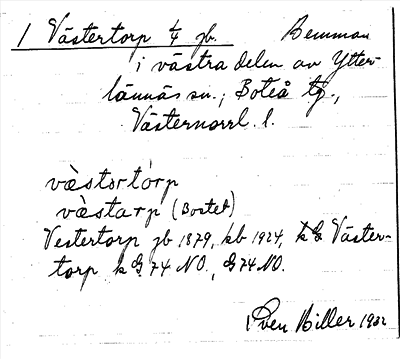 1 Västertorp 1/4 jb. Hemman
i västra delen av Ytter-
lännäs sn., Boteå tg.,
Västernorrl. l.
vä̀stǝrtòrp
vä̀starp (Bostet)
Vestertorp jb 1879, kb 1924, k G Väster-
torp k G 74 NO., G 74 NO.
Sven Biller 1932